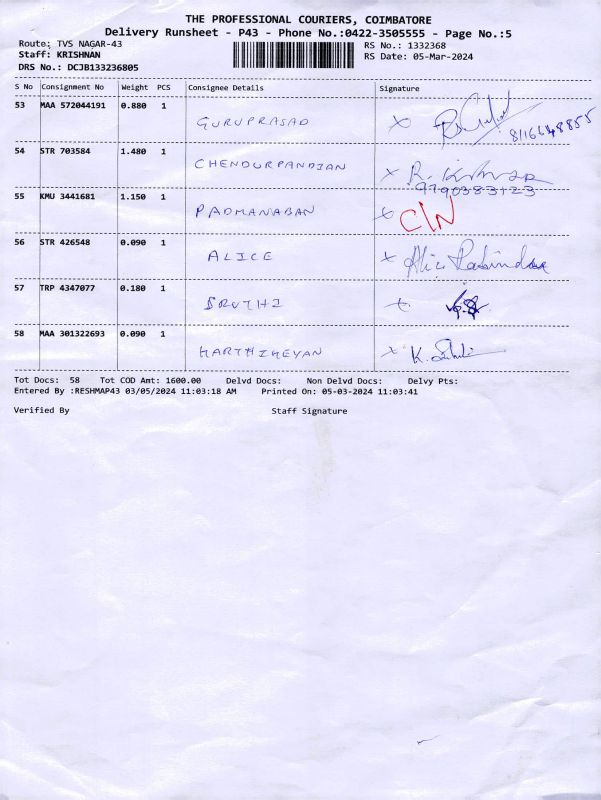 THE PROFESSIONAL COURIERS, COIMBATORE
Delivery Runsheet - P43 - Phone No.:0422-3505555 - Page No.:5
Route: TVS NAGAR-43 RS No.: 1332368
Staff: KRISHNAN RS Date: 05-Mar-2024
DRS No.: DCJB133236805
S No Consignment No Weight PCS Consignee Details Signature
53 MAA 572044191 0.880 1 GURUPRASAD X
54 STR 703584 1.480 1 CHENDURPANDIAN X R. Kumar
9790383123
55 KMU 3441681 1.150 1 PADMANABAN X C/N
56 STR 426548 0.090 1 ALICE X Alice
57 TRP 4347077 0.180 1 SRUTHI X
58 MAA 301322693 0.090 1 KARTHIKEYAN X K.
Tot Docs: 58 Tot COD Amt: 1600.00 Delvd Docs: Non Delvd Docs: Delvy Pts:
Entered By :RESHMAP43 03/05/2024 11:03:18 AM Printed On: 05-03-2024 11:03:41
Verified By Staff Signature